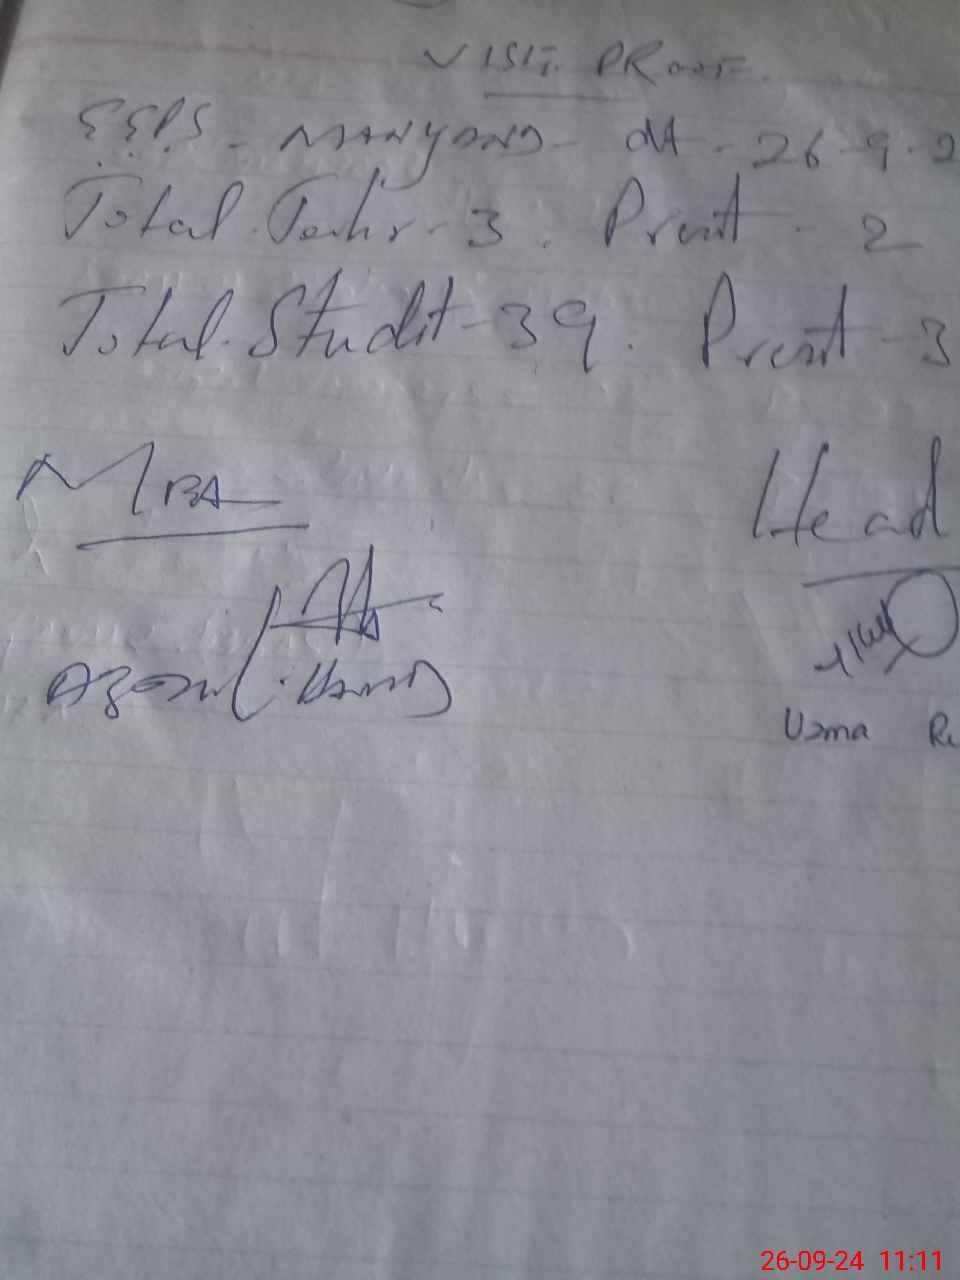 VISIT PROOF
GGPS - MANYAND - dt - 26-9-2
Total Techr - 3. Presnt - 2
Total Studtt - 39. Presnt - 3
MBA Head
Uzma
26-09-24 11:11